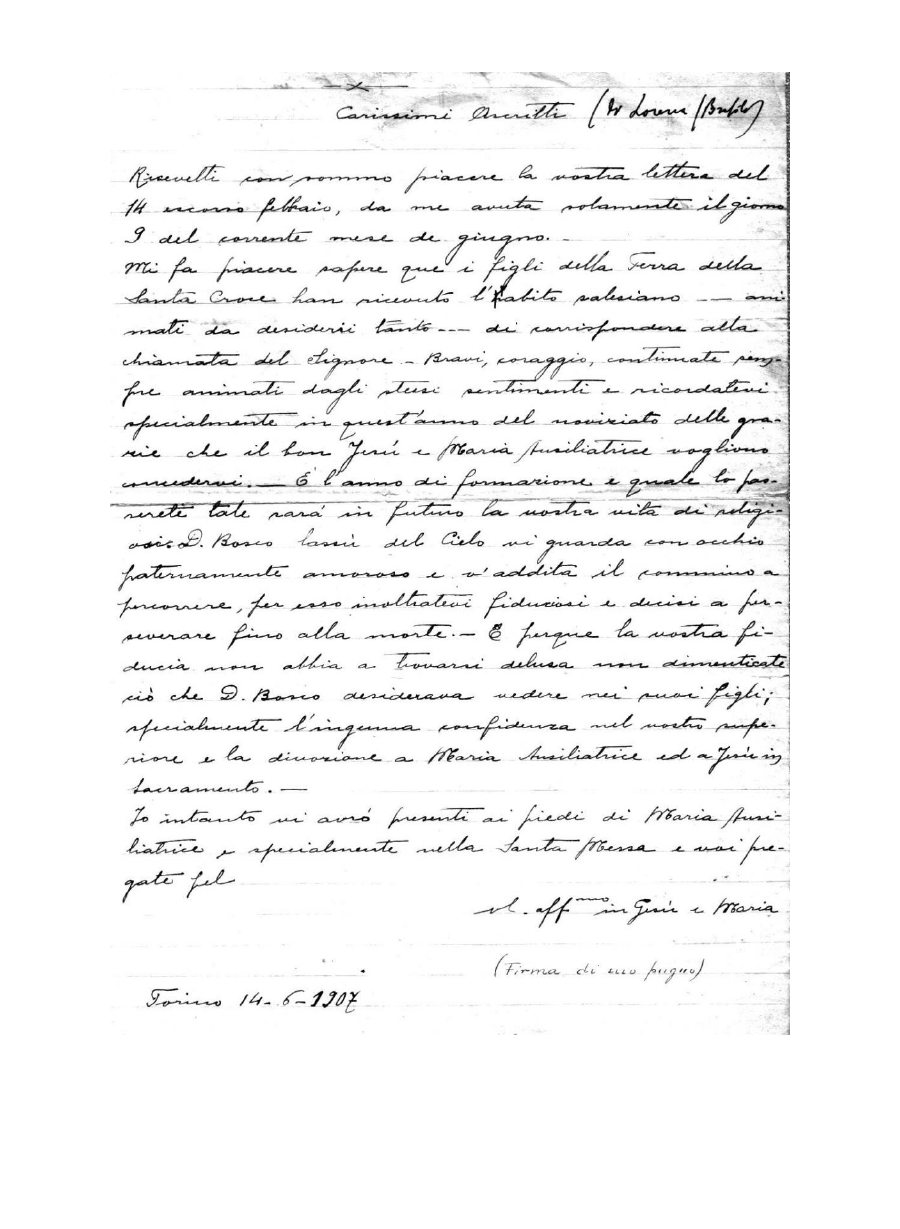 Carissimi Ascritti (di Lorena (Brasile)
Ricevetti con sommo piacere la vostra lettera del
14 scorso febbraio, da me avuta solamente il giorno
9 del corrente mese de giugno. -
Mi fa piacere sapere que i figli della Terra della
Santa Croce han ricevuto l'abito salesiano -- ani-
mati da desiderii tanto --- di corrispondere alla
chiamata del Signore - Bravi, coraggio, continuate sem-
pre animati dagli stessi sentimenti e ricordatevi
specialmente in quest'anno del noviziato delle gra-
zie che il bon Jesú e Maria Ausiliatrice vogliono
concedervi. - È l'anno di formazione e quale lo pas-
serete tale sará in futuro la vostra vita di religi-
osi. D. Bosco lassù del Cielo vi guarda con occhio
paternamente amoroso e v'addita il commino a
percorrere, per esso inoltratevi fiduciosi e decisi a per-
severare fino alla morte. - E perque la vostra fi-
ducia non abbia a trovarsi delusa non dimenticate
ciò che D. Bosco desiderava vedere nei suoi figli;
specialmente l'ingenua confidenza nel vostro supe-
riore e la divozione a Maria Ausiliatrice ed a Jesù in
Sacramento. -
Io intanto vi avró presenti ai piedi di Maria Ausi-
liatrice e specialmente nella Santa Messa e voi pre-
gate pel
aff.mo in Gesù e Maria
(Firma di suo pugno)
Torino 14-6-1907